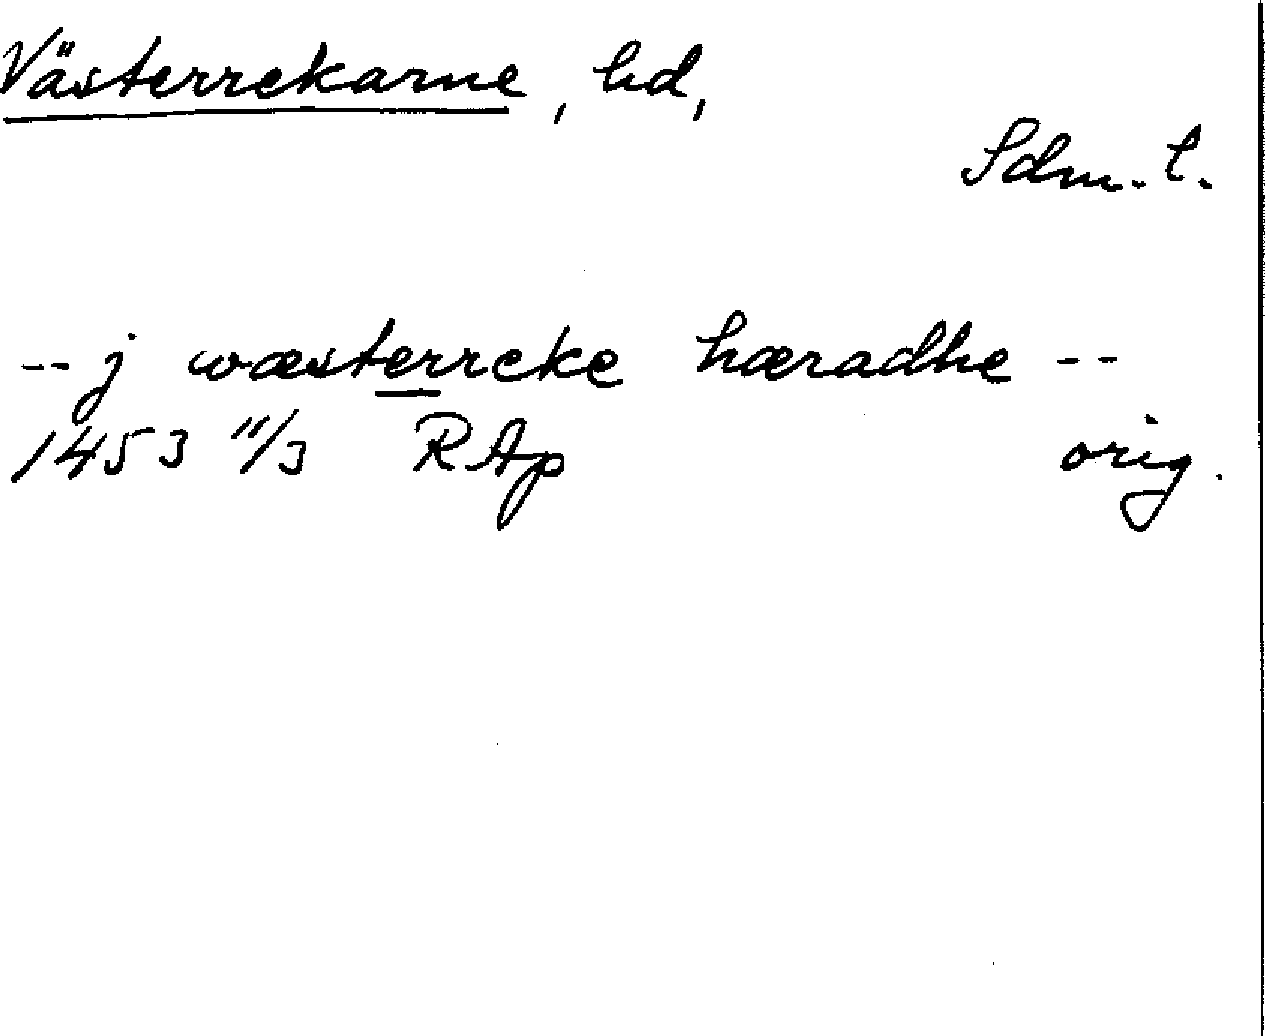 Västerrekarne, hd,
Sdm. l.
-- j wæsterreke hæradhe --
1453 11/3 RAp orig.